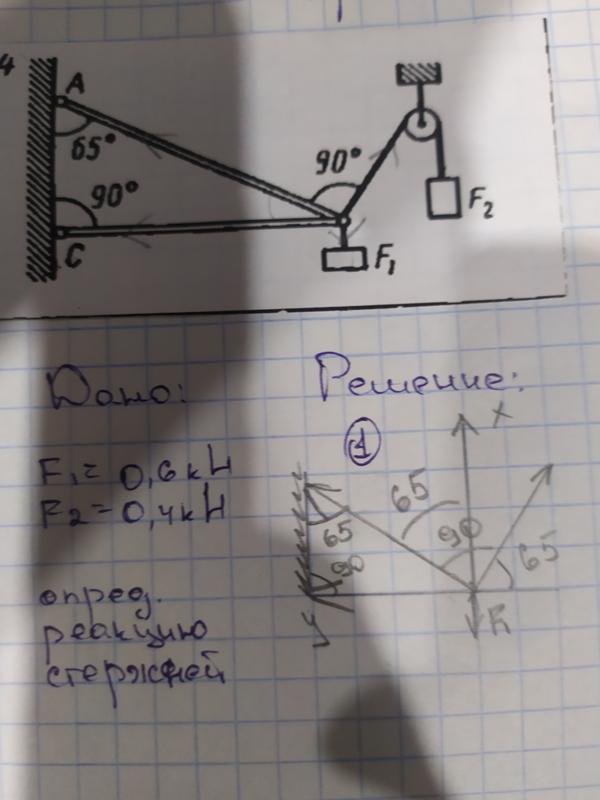 4
A
65°
90°
90°
C
F₁
F₂
Дано:
Решение:
F₁ = 0,6 кН
F₂ = 0,4 кН
опред.
реакцию
стержней
1
x
65
65
90
90
65
F₁
y